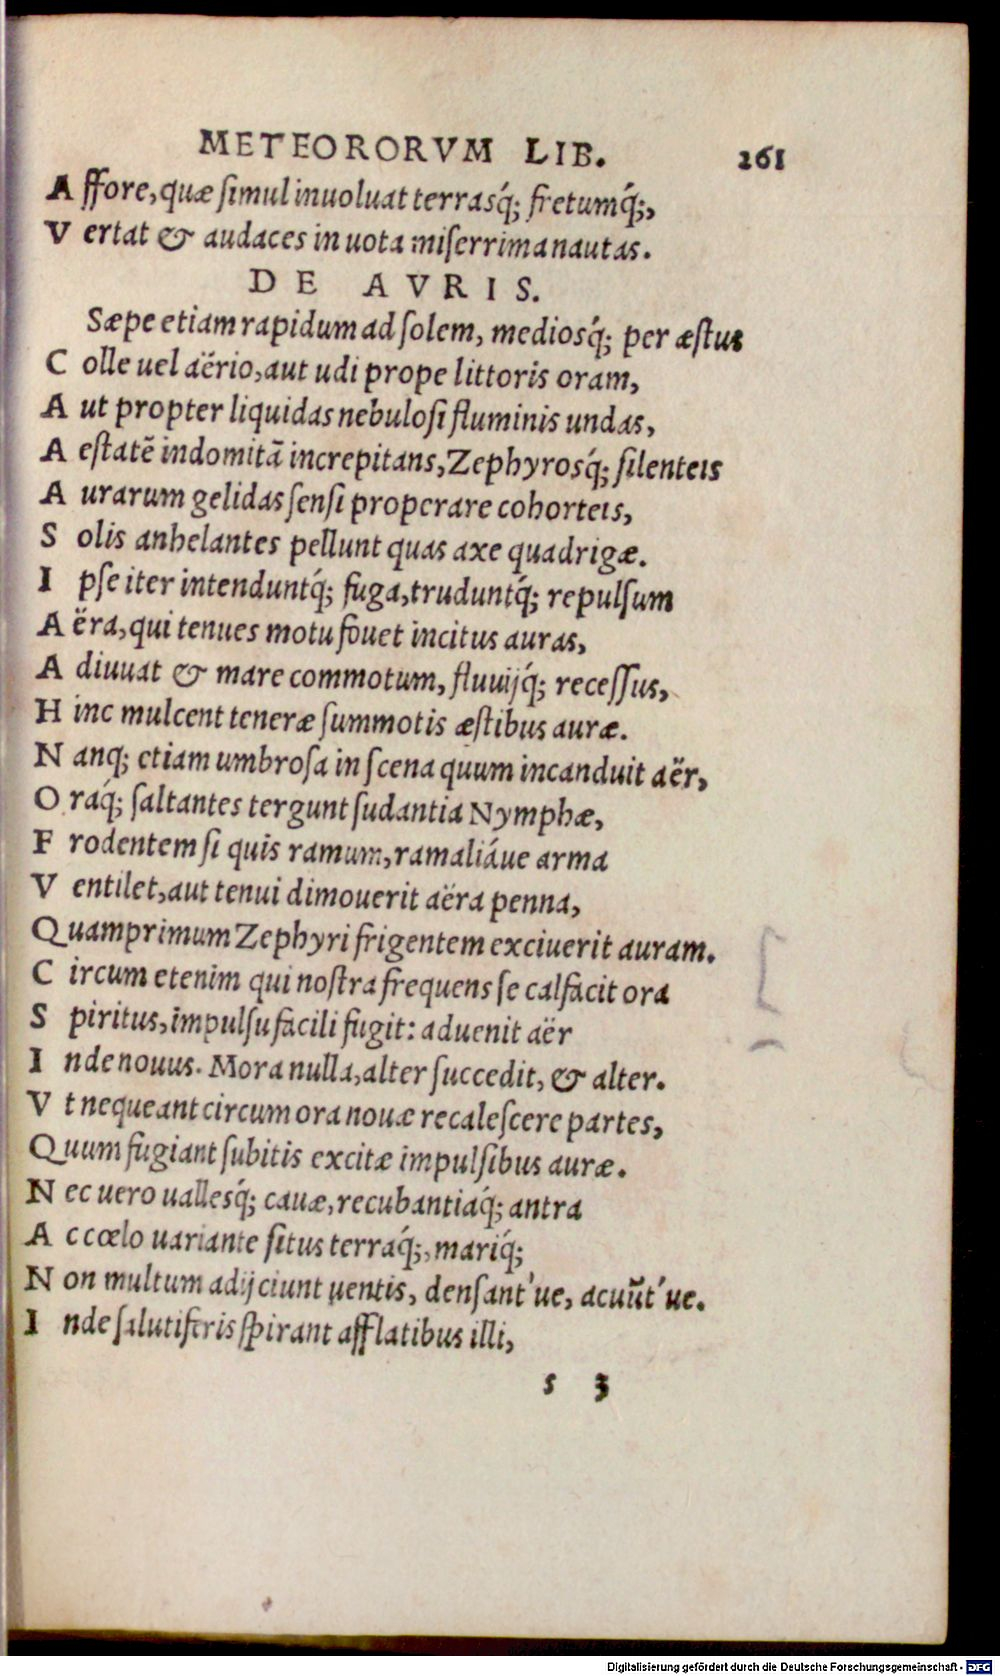 METEORORVM LIB. 261
A ffore, quæ simul inuoluat terrasq́; fretumq́;,
V ertat & audaces in uota miserrima nautas.
DE AVRIS.
Sæpe etiam rapidum ad solem, mediosq́; per æstus
C olle uel aërio, aut udi prope littoris oram,
A ut propter liquidas nebulosi fluminis undas,
A estatē indomitā increpitans, Zephyrosq́; silenteis
A urarum gelidas sensi properare cohorteis,
S olis anhelantes pellunt quas axe quadrigæ.
I pse iter intenduntq́; fuga, truduntq́; repulsum
A ëra, qui tenues motu fouet incitus auras,
A diuuat & mare commotum, fluuijq́; recessus,
H inc mulcent teneræ summotis æstibus auræ.
N anq; etiam umbrosa in scena quum incanduit aër,
O raq́; saltantes tergunt sudantia Nymphæ,
F rodentem si quis ramum, ramaliáue arma
V entilet, aut tenui dimouerit aëra penna,
Q uamprimum Zephyri frigentem exciuerit auram.
C ircum etenim qui nostra frequens se calfacit ora
S piritus, impulsu facili fugit: aduenit aër
I nde nouus. Mora nulla, alter succedit, & alter.
V t nequeant circum ora nouæ recalescere partes,
Q uum fugiant subitis excitæ impulsibus auræ.
N ec uero uallesq́; cauæ, recubantiaq́; antra
A c cœlo uariante situs terraq́;, mariq́;
N on multum adijciunt uentis, densant'ue, acuūt'ue.
I nde salutiferis spirant afflatibus illi,
s 3
Digitalisierung gefördert durch die Deutsche Forschungsgemeinschaft - DFG